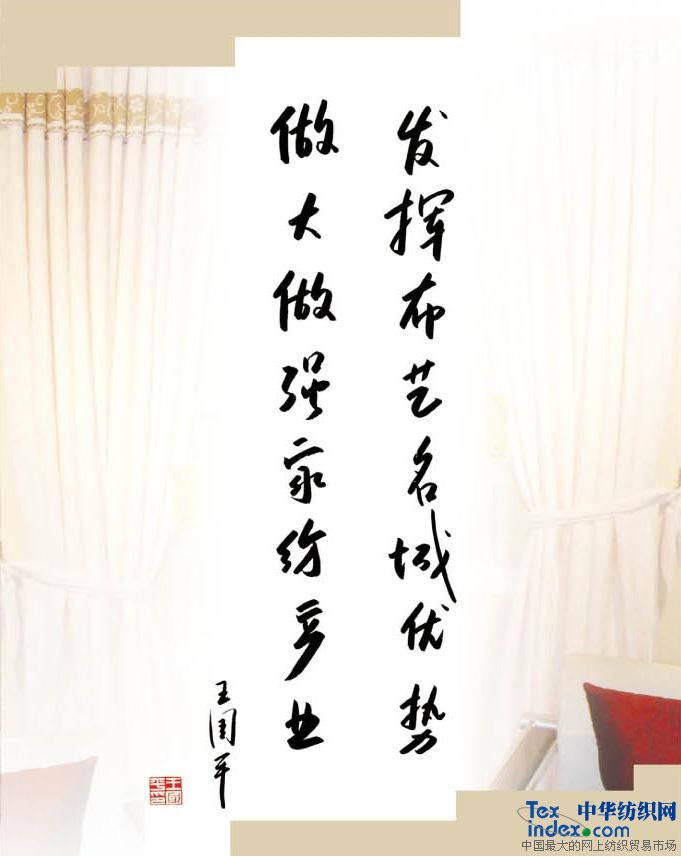 发挥布艺名城优势
做大做强家纺产业
王国平
Tex 中华纺织网
index.com
中国最大的网上纺织贸易市场